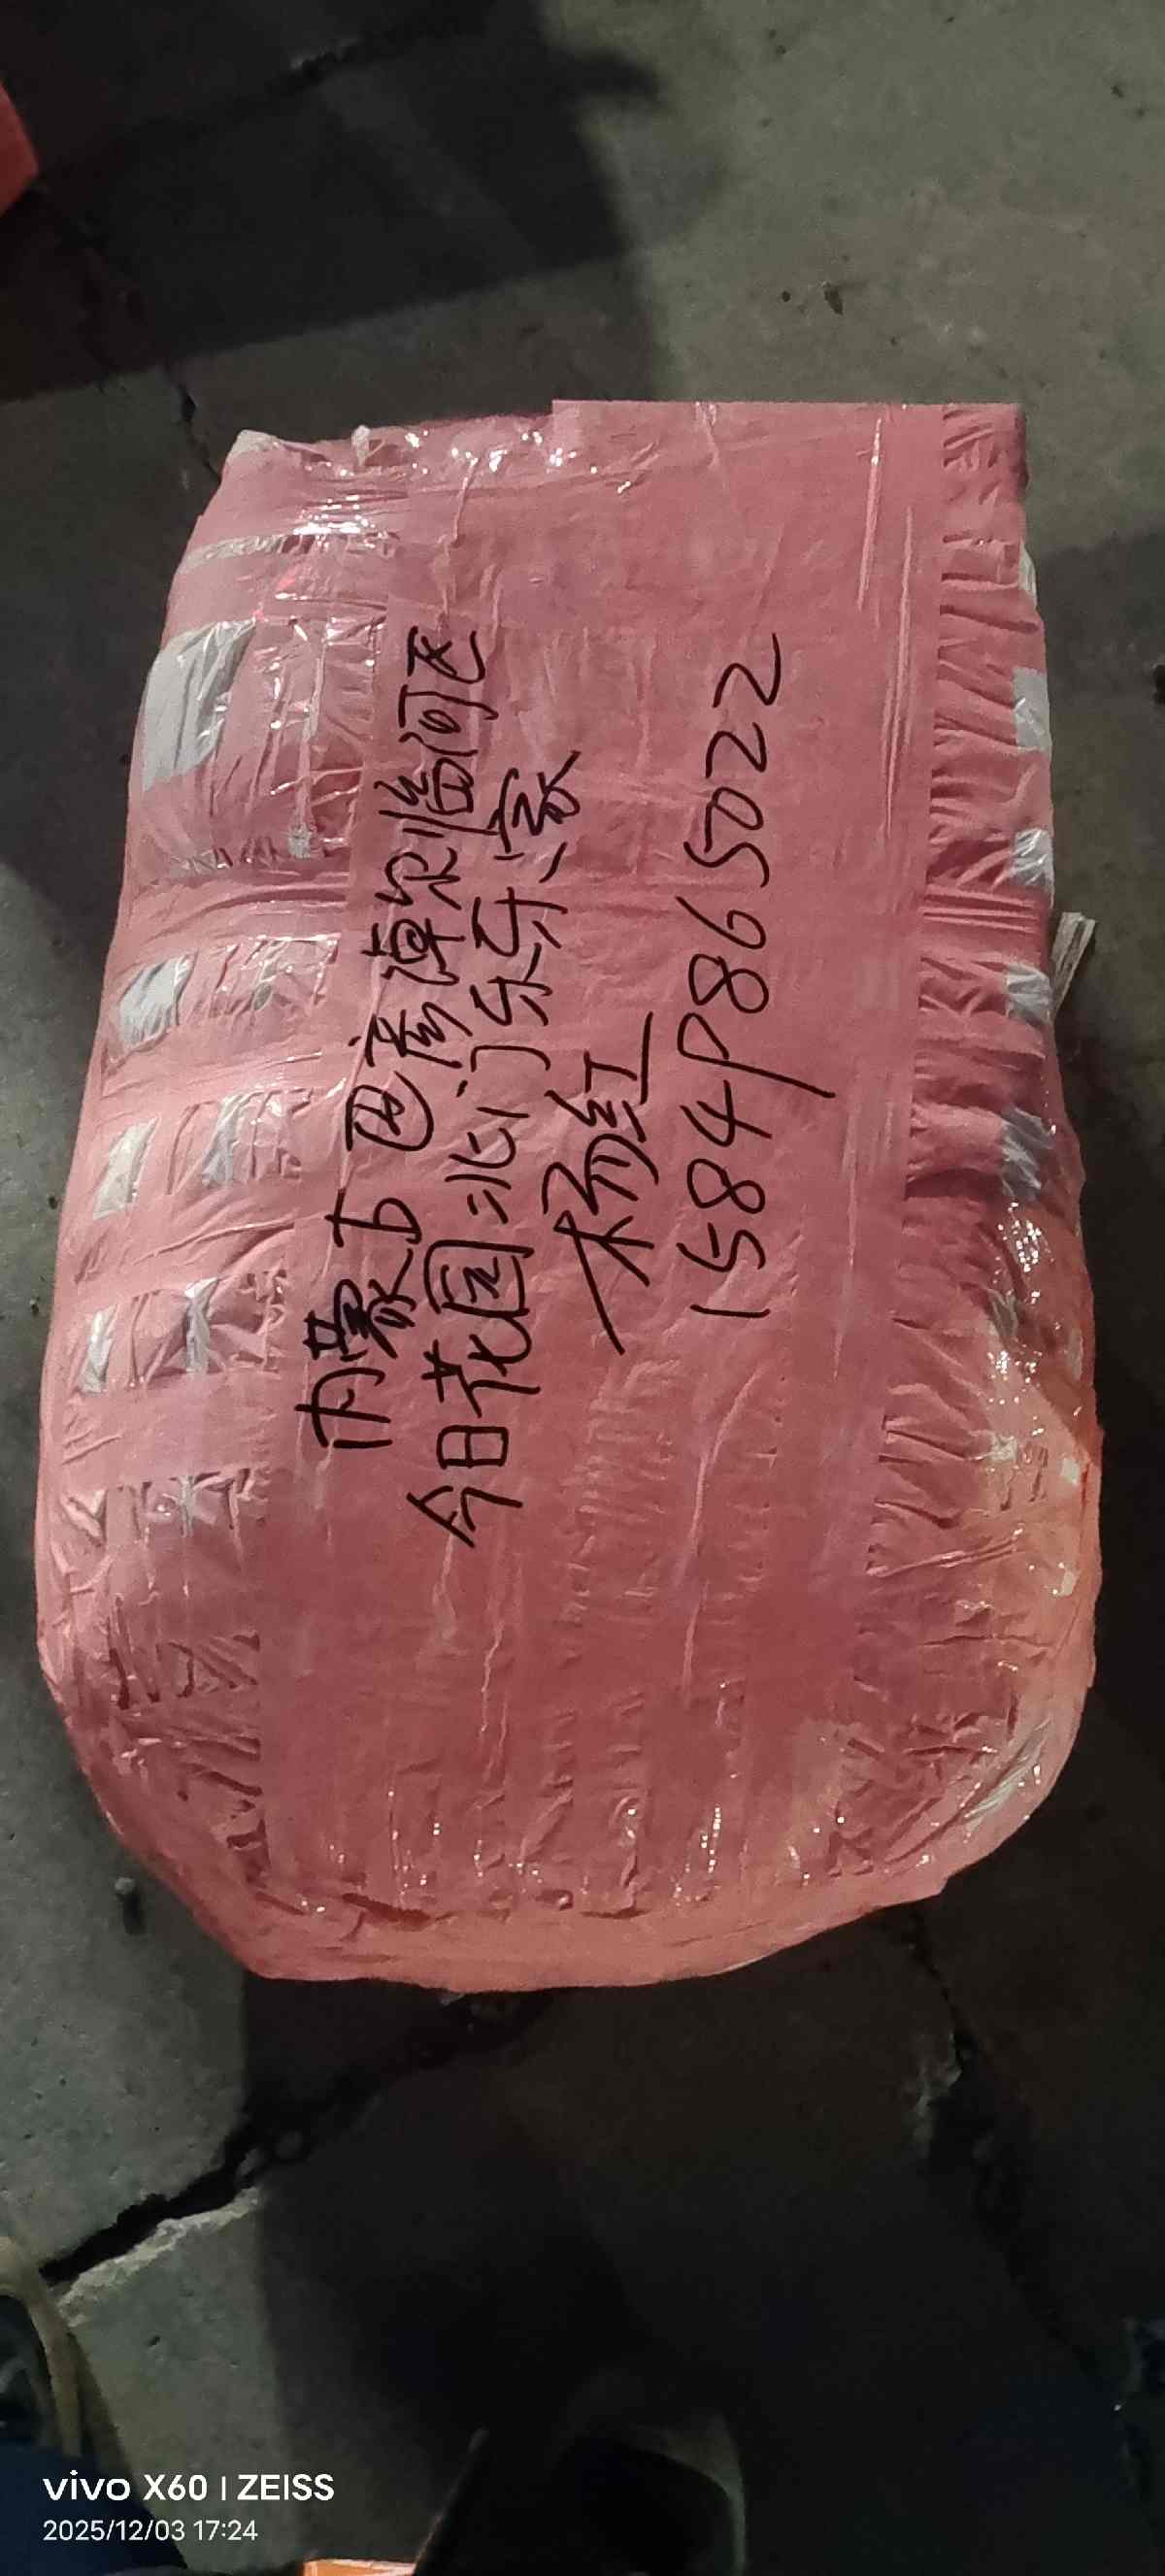 内蒙古巴彦淖尔临河区
今日花园北门乐乐家
杨红
１５８４Ｐ８６５０２２
vivo X60 | ZEISS
2025/12/03 17:24